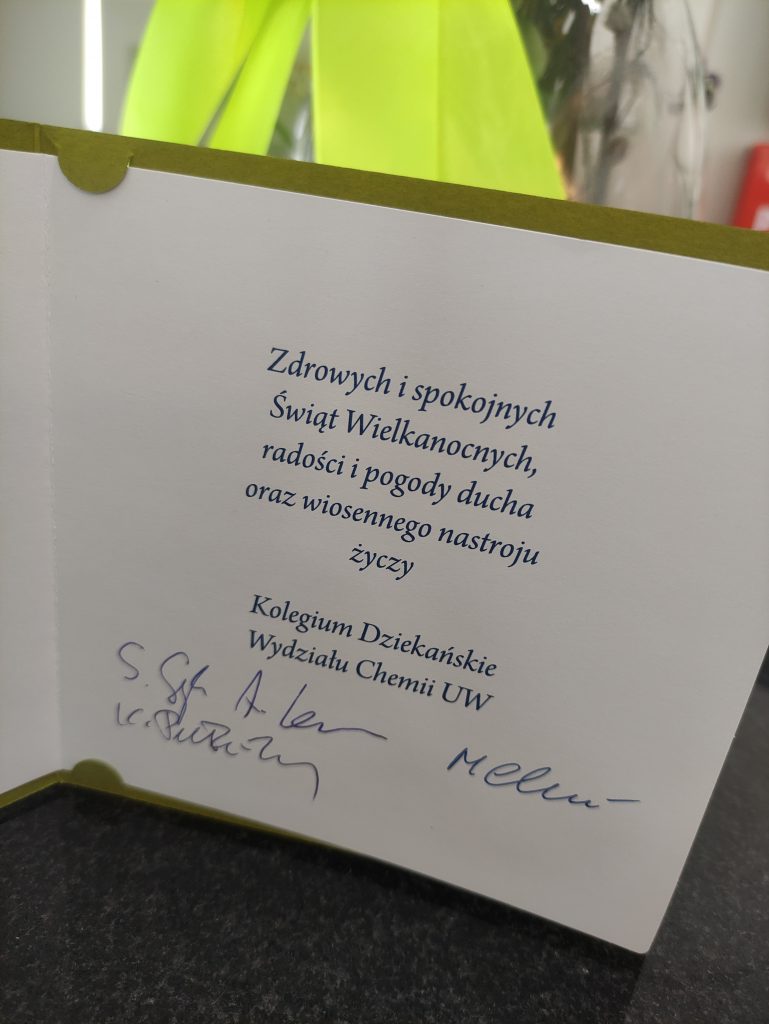 Zdrowych i spokojnych
Świąt Wielkanocnych,
radości i pogody ducha
oraz wiosennego nastroju
życzy
Kolegium Dziekańskie
Wydziału Chemii UW